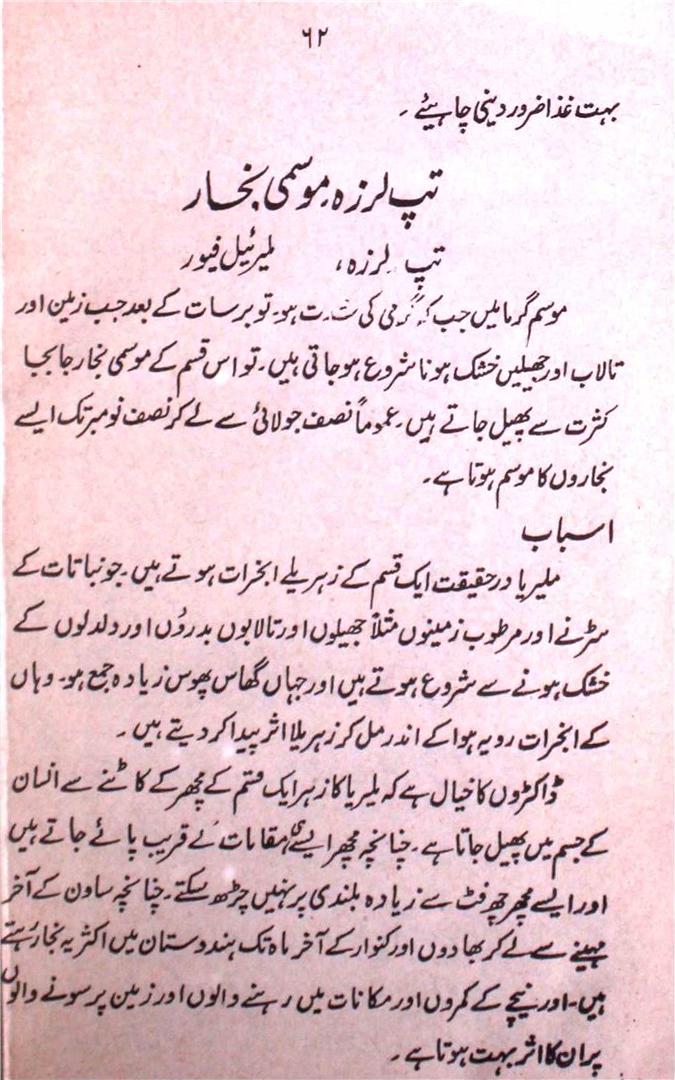 ۶۲
بہت غذا ضرور دینی چاہیئے ۔
تپ لرزہ۔ موسمی بخار
تپ لرزہ، ملیرئیل فیور
موسم گرما میں جب کہ گرمی کی شدت ہو۔ تو برسات کے بعد جب زمین اور
تالاب اور جھیلیں خشک ہونا شروع ہو جاتی ہیں۔ تو اس قسم کے موسمی بخار جا بجا
کثرت سے پھیل جاتے ہیں۔ عموماً نصف جولائی سے لے کر نصف نومبر تک ایسے
بخاروں کا موسم ہوتا ہے۔
اسباب
ملیریا در حقیقت ایک قسم کے زہریلے ابخرات ہوتے ہیں۔ جو نباتات کے
سڑنے اور مرطوب زمینوں مثلاً جھیلوں اور تالابوں بدرؤں اور دلدلوں کے
خشک ہونے سے شروع ہوتے ہیں اور جہاں گھاس پھوس زیادہ جمع ہو۔ وہاں
کے ابخرات رویہ ہوا کے اندر مل کر زہریلا اثر پیدا کر دیتے ہیں ۔
ڈاکٹروں کا خیال ہے کہ ملیریا کا زہر ایک قسم کے مچھر کے کاٹنے سے انسان
کے جسم میں پھیل جاتا ہے۔ چنانچہ مچھر ایسے ہی مقامات کے قریب پائے جاتے ہیں
اور ایسے مچھر چھ فٹ سے زیادہ بلندی پر نہیں چڑھ سکتے۔ چنانچہ ساون کے آخر
مہینے سے لے کر بھادوں اور کنوار کے آخر ماہ تک ہندوستان میں اکثر یہ بخار رہتے
ہیں۔ اور نیچے کے کمروں اور مکانات میں رہنے والوں اور زمین پر سونے والوں
پر ان کا اثر بہت ہوتا ہے ۔